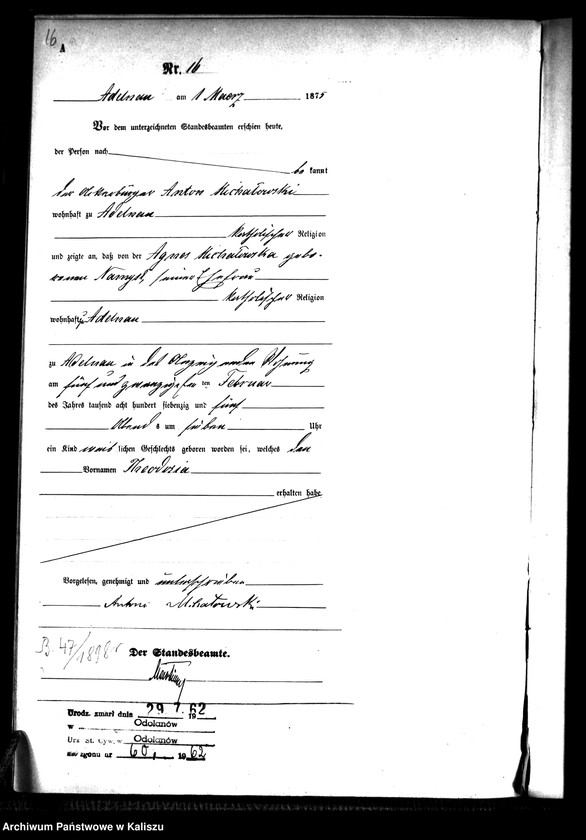 16
A
Nr. 16
Adelnau am 1 Maerz 1875
Vor dem unterzeichneten Standesbeamten erschien heute,
der Person nach
be kannt
der Ackerbürger Anton Michałowski
wohnhaft zu Adelnau
katholischer Religion
und zeigte an, daß von der Agnes Michałowska gebo-
renen Namysł seiner Ehefrau
katholischer Religion
wohnhaft zu Adelnau
zu Adelnau in der Wohnung
am fünf und zwanzigsten ten Februar
des Jahres tausend acht hundert siebenzig und fünf
Abend s um sieben Uhr
ein Kind weib lichen Geschlechts geboren worden sei, welches den
Vornamen Theodozia
erhalten habe.
Vorgelesen, genehmigt und unterschrieben
Antoni Michałowski
B. 47/1898
Der Standesbeamte.
Urodz. zmarł dnia 29.7.1962
w Odolanów
Urz. St. Cyw. w Odolanów
Akt zgonu nr 60 1962
Archiwum Państwowe w Kaliszu